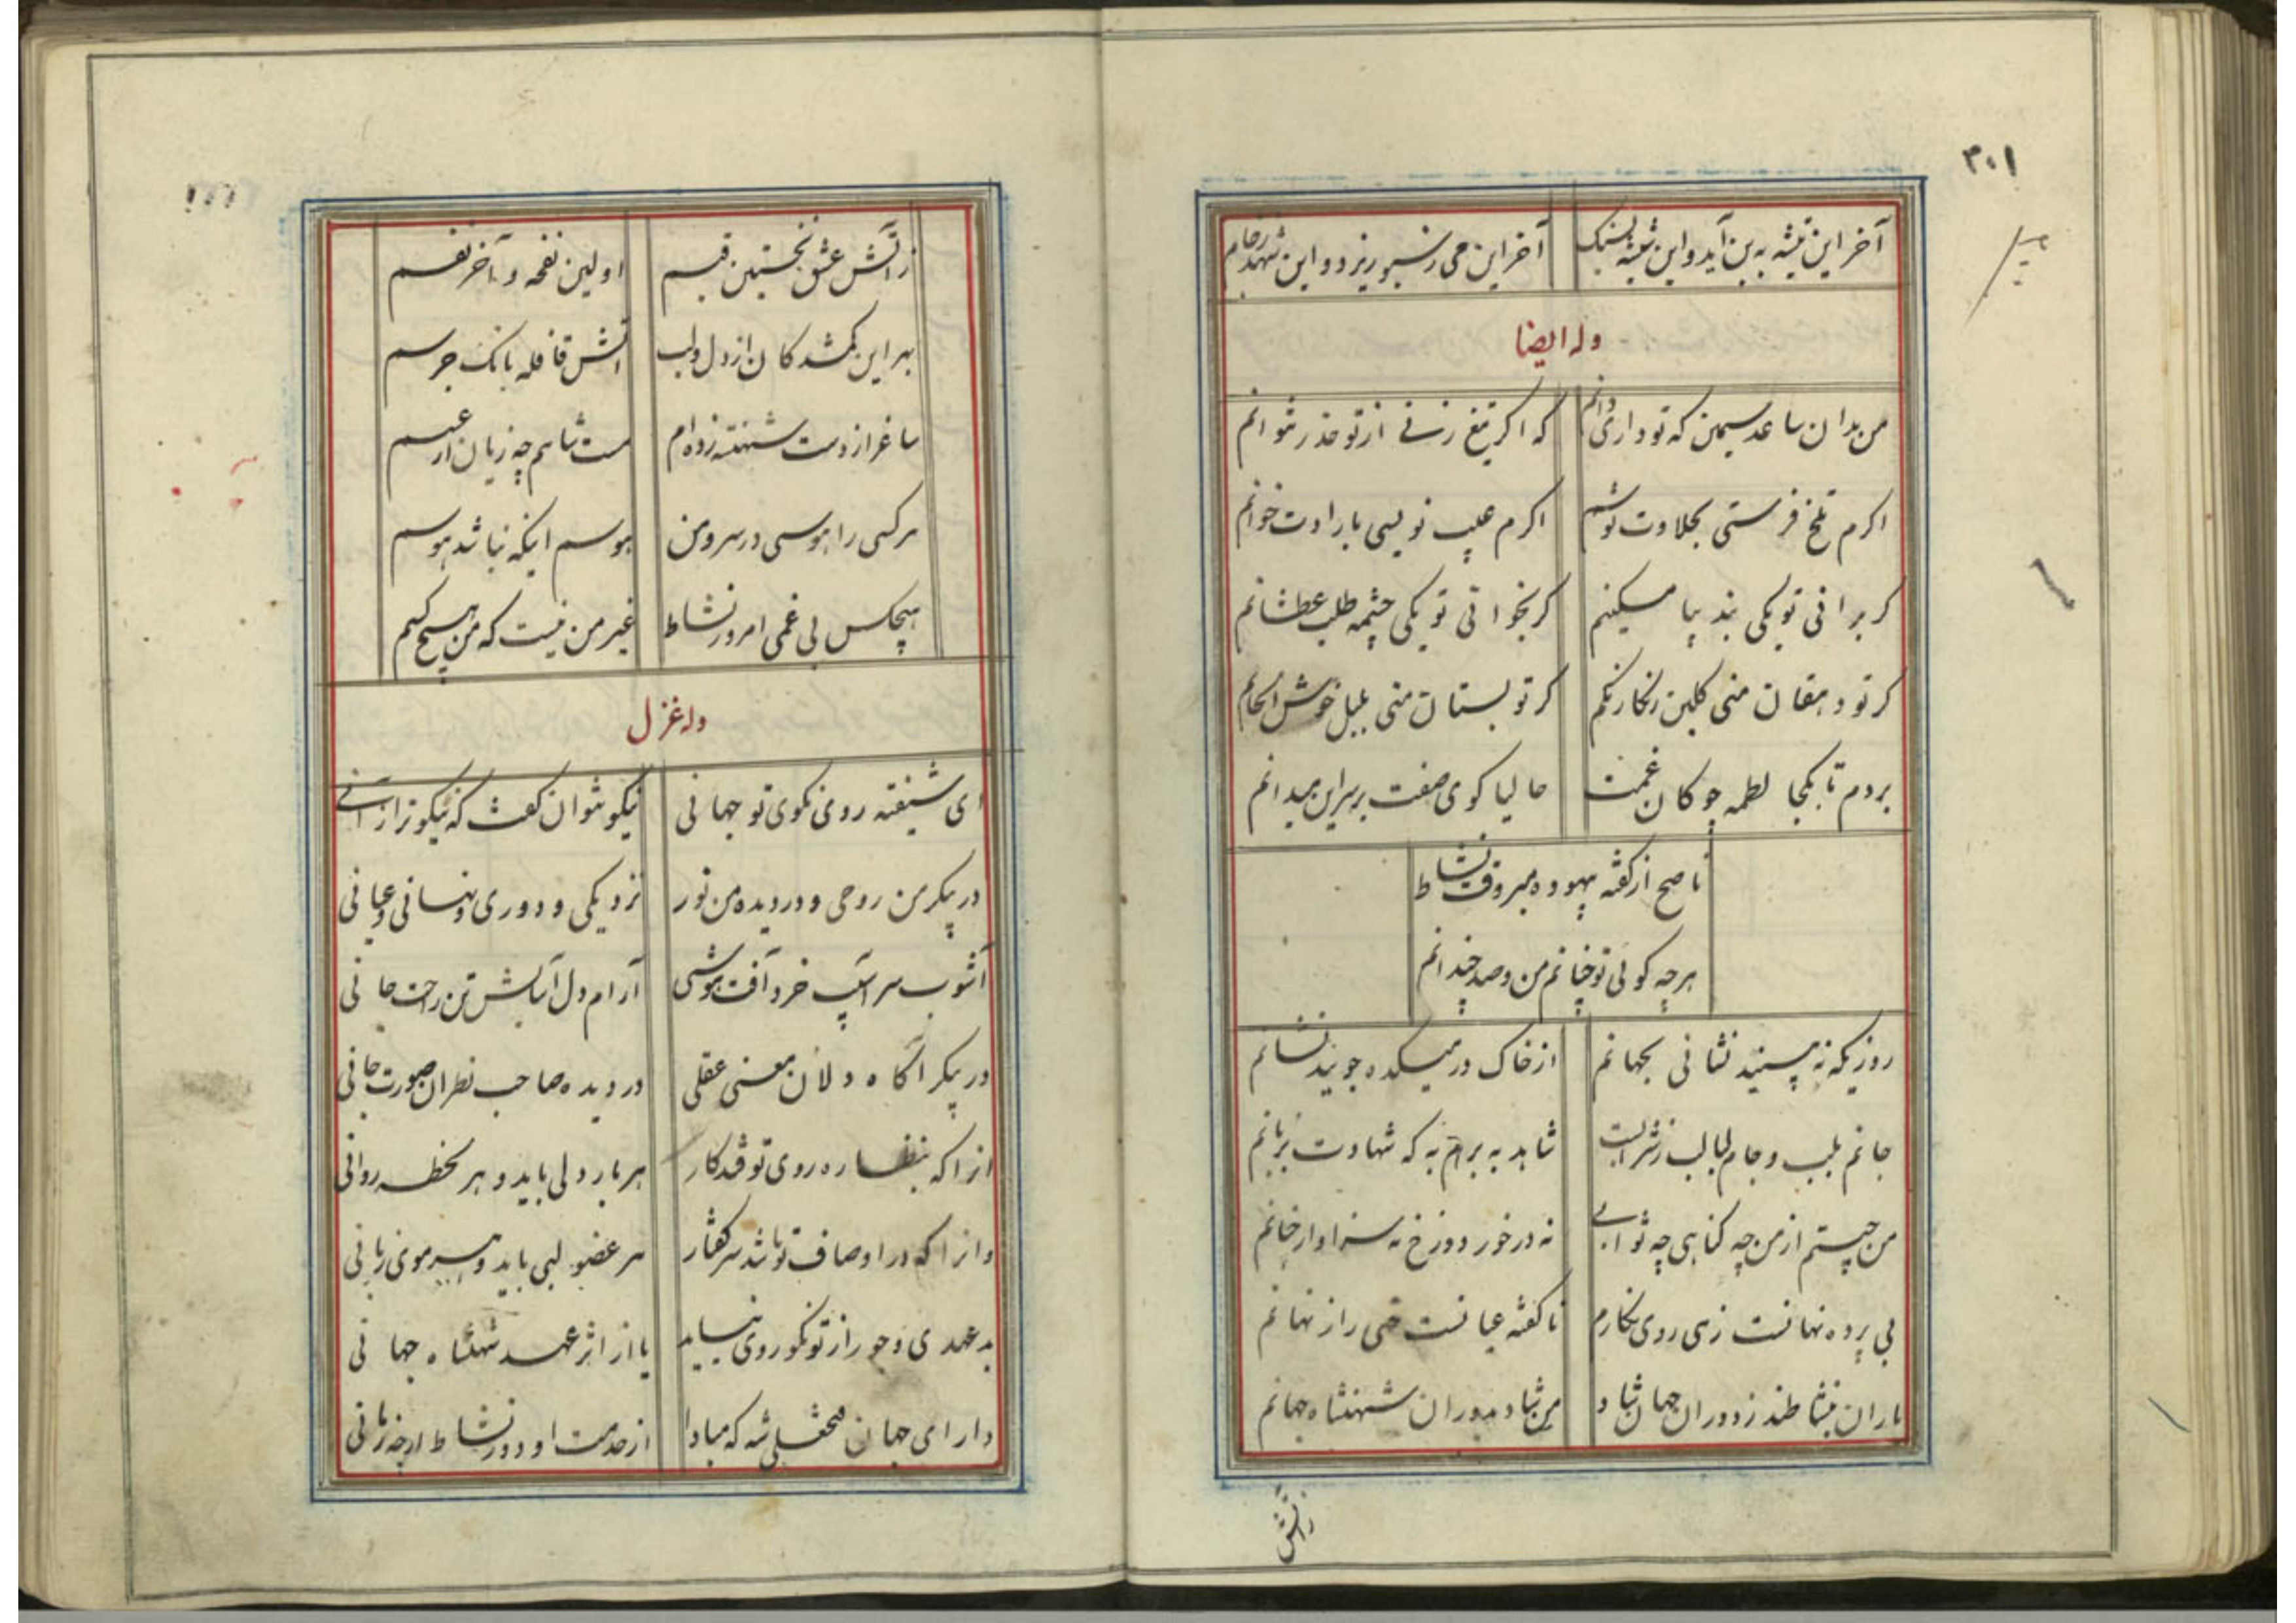 ۳۰۱
آخر این تیشه به بن آید و این شیشه بسنگ آخر این می ز سبو ریزد و این شهد ز جام
وله ایضا
من بدان ساعد سیمین که تو داری دانم که اکر تیغ زنی از تو حذر نتوانم
اکرم تلخ فرستی بحلاوت نوشم اکرم عیب نویسی بارادت خوانم
کر برانی تو یکی بند بپا مسکینم کر بخوانی تو یکی چشمه طلب عطشانم
کر تو دهقان منی کلبن رنکارنکم کر تو بستان منی بلبل خوش الحانم
بردم تا بکجا لطمه چوکان غمت حالیا کوی صفت بر سر این میدانم
ناصح از کفته بیهوده مبر وقت نشاط
هرچه کوئی تو چنانم من و صد چندانم
روزیکه نه بینید نشانی بجهانم از خاک در میکده جویید نشانم
جانم بلب و جام لبالب ز شرابست شاهد به برم به که شهادت بزبانم
من چیستم از من چه کناهی چه ثوابی نه در خور دوزخ نه سزاوار جنانم
بی پرده نهانست زهی روی نکارم ناکفته عیانست خهی راز نهانم
یاران بنشاطند ز دوران جهان شاد من شاد بدوران شهنشاه جهانم
زاتش
زاتش عشق نخستین قبسم اولین نفحه و آخر نفسم
بهر این کمشدکان از دل و لب اتش قافله بانک جرسم
ساغر از دست شهنشه زده ام مست شاهم چه زیان از عسسم
هر کسی را هوسی در سر و من هوسم اینکه نباشد هوسم
هیچکس بی غمی امروز نشاط غیر من نیست که من هیچ کسم
وله غزل
ای شیفته روی نکوی تو جهانی نیکو نتوان کفت که نیکوتر از آنی
در پیکر من روحی و در دیده من نور نزدیکی و دوری و نهانی و عیانی
آشوب سر آسیب خرد آفت هوشی آرام دل آسایش تن راحت جانی
در پیکر آکاه دلان معنی عقلی در دیده صاحب نظران صورت جانی
انرا که بنظاره روی تو فتد کار هر بار دلی باید و هر لحظه روانی
وانرا که در اوصاف تو باشد سر کفتار هر عضو لبی باید و هر موی زبانی
بد عهدی و جور از تو نکو روی نیاید یا از اثر عهد شهنشاه جهانی
دارای جهان فتحعلی شه که مبادا از خدمت او دور نشاط ارچه زمانی